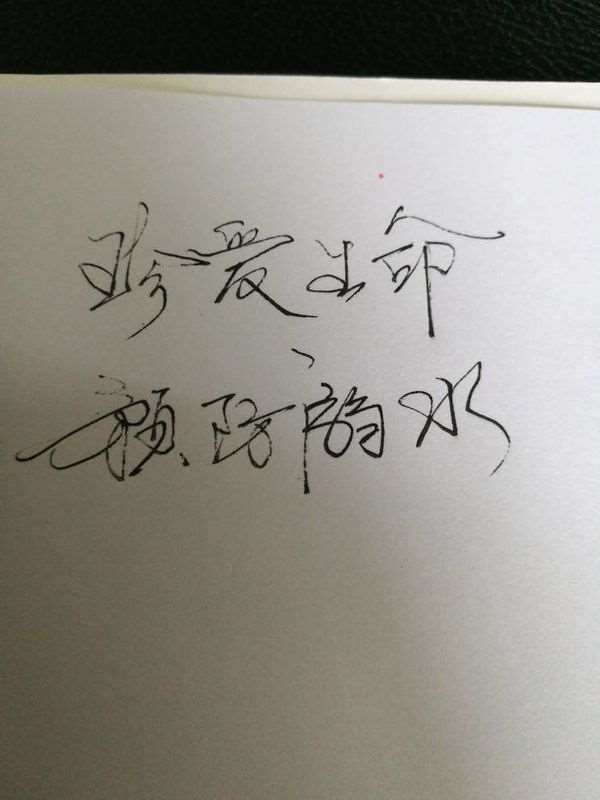 珍爱生命
预防溺水